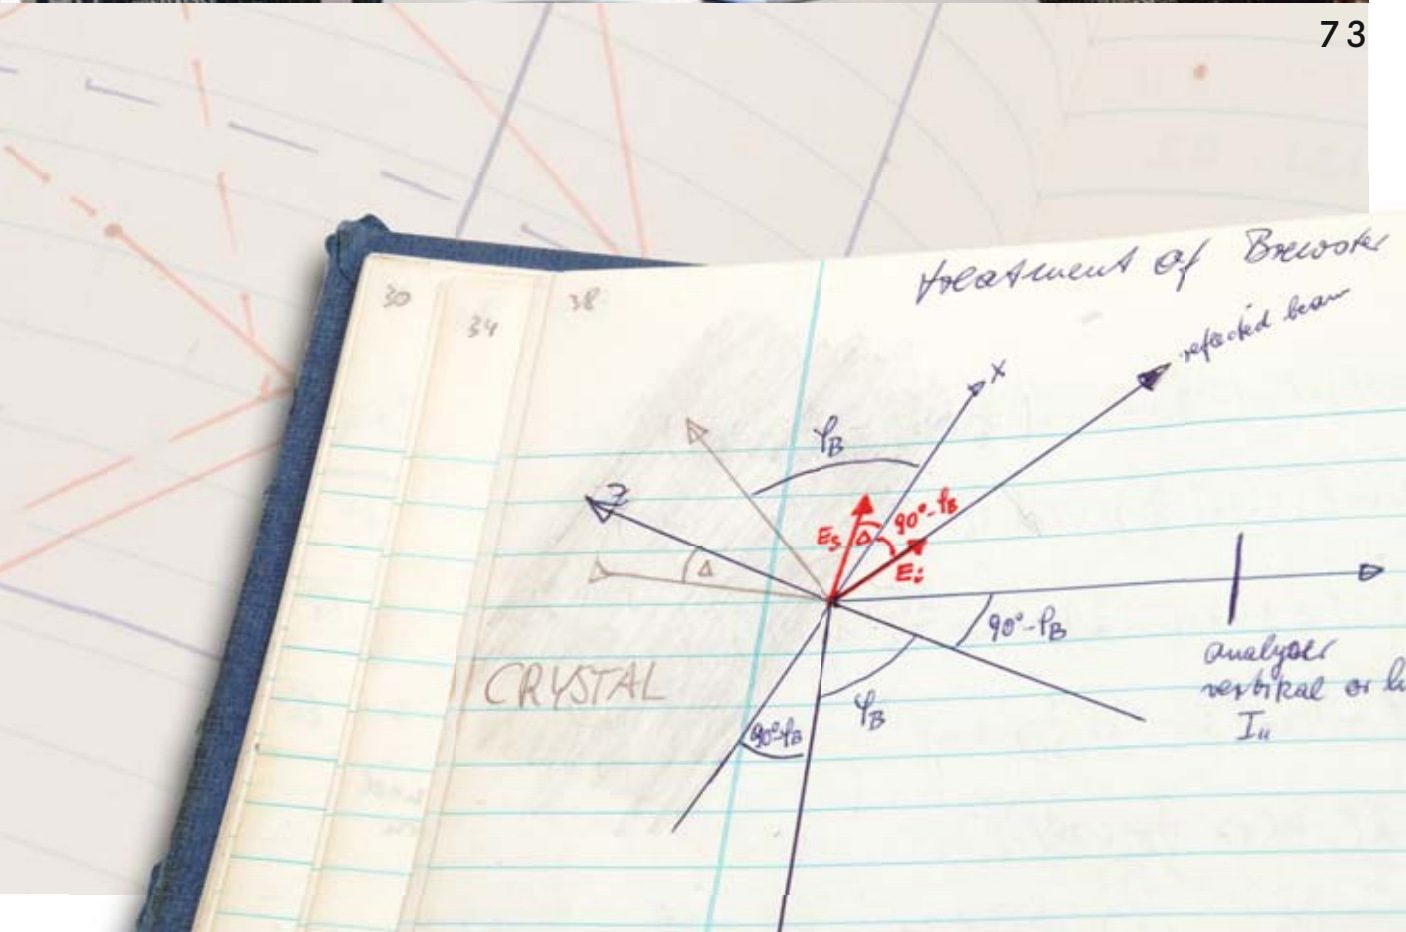 73
30
34
38
treatment of Brewster
reflected beam
x
φB
z
Es
Δ
90°-φB
Ei
Δ
90°-φB
CRYSTAL
φB
90°-φB
analyser
vertikal or
I